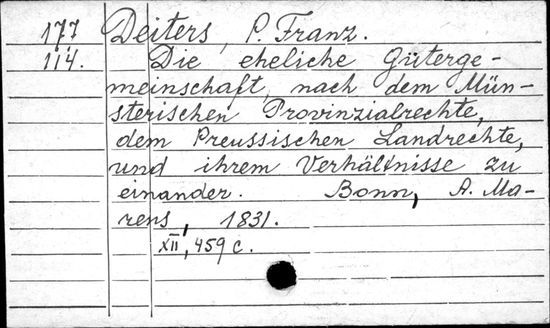 177 Deiters, P. Franz.
114. Die eheliche Güterge-
meinschaft, nach dem Mün-
sterischen Provinzialrechte,
dem Preussischen Landrechte,
und ihrem Verhältnisse zu
einander. Bonn, A. Ma-
rens, 1831.
XII, 459 c.